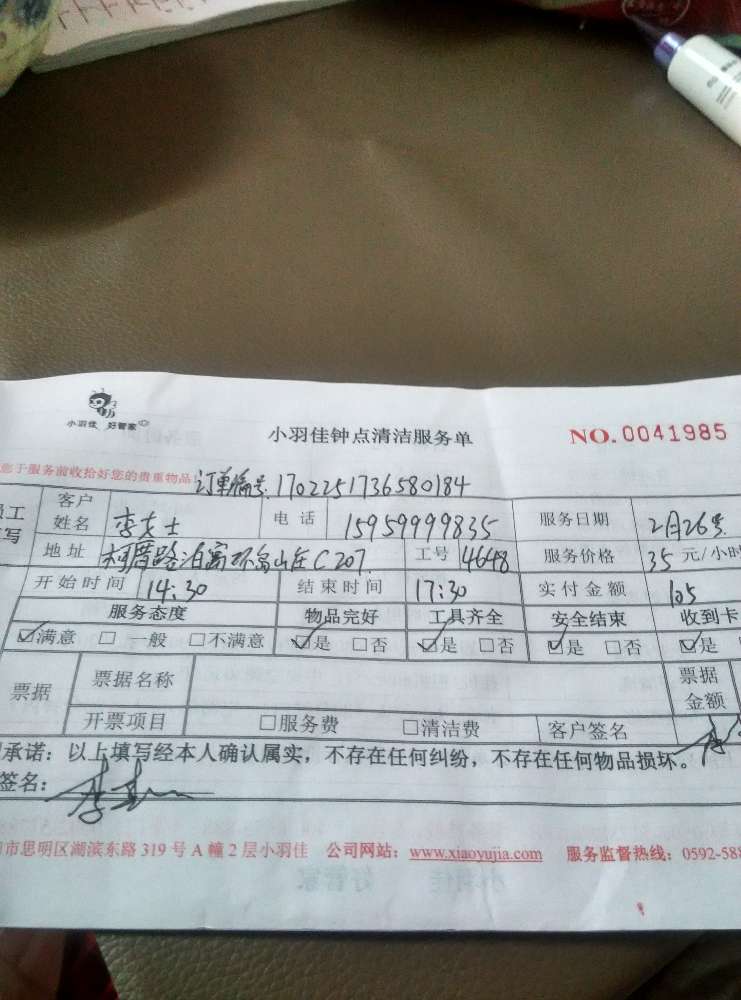 小羽佳 好管家
小羽佳钟点清洁服务单
NO. 0041985
您于服务前收拾好您的贵重物品!
订单编号: 1702251736580184
客户姓名 李女士 电话 15959999835 服务日期 2月26号
地址 柯厝路泊寓环岛山庄C207 工号 4648 服务价格 35 元/小时
开始时间 14:30 结束时间 17:30 实付金额 105
服务态度 物品完好 工具齐全 安全结束 收到卡
☑满意 □一般 □不满意 ☑是 □否 ☑是 □否 ☑是 □否 ☑是
票据 票据名称 票据金额
开票项目 □服务费 □清洁费 客户签名
承诺: 以上填写经本人确认属实,不存在任何纠纷,不存在任何物品损坏。
签名:
市思明区湖滨东路 319 号 A 幢 2 层小羽佳 公司网站: www.xiaoyujia.com 服务监督热线: 0592-588